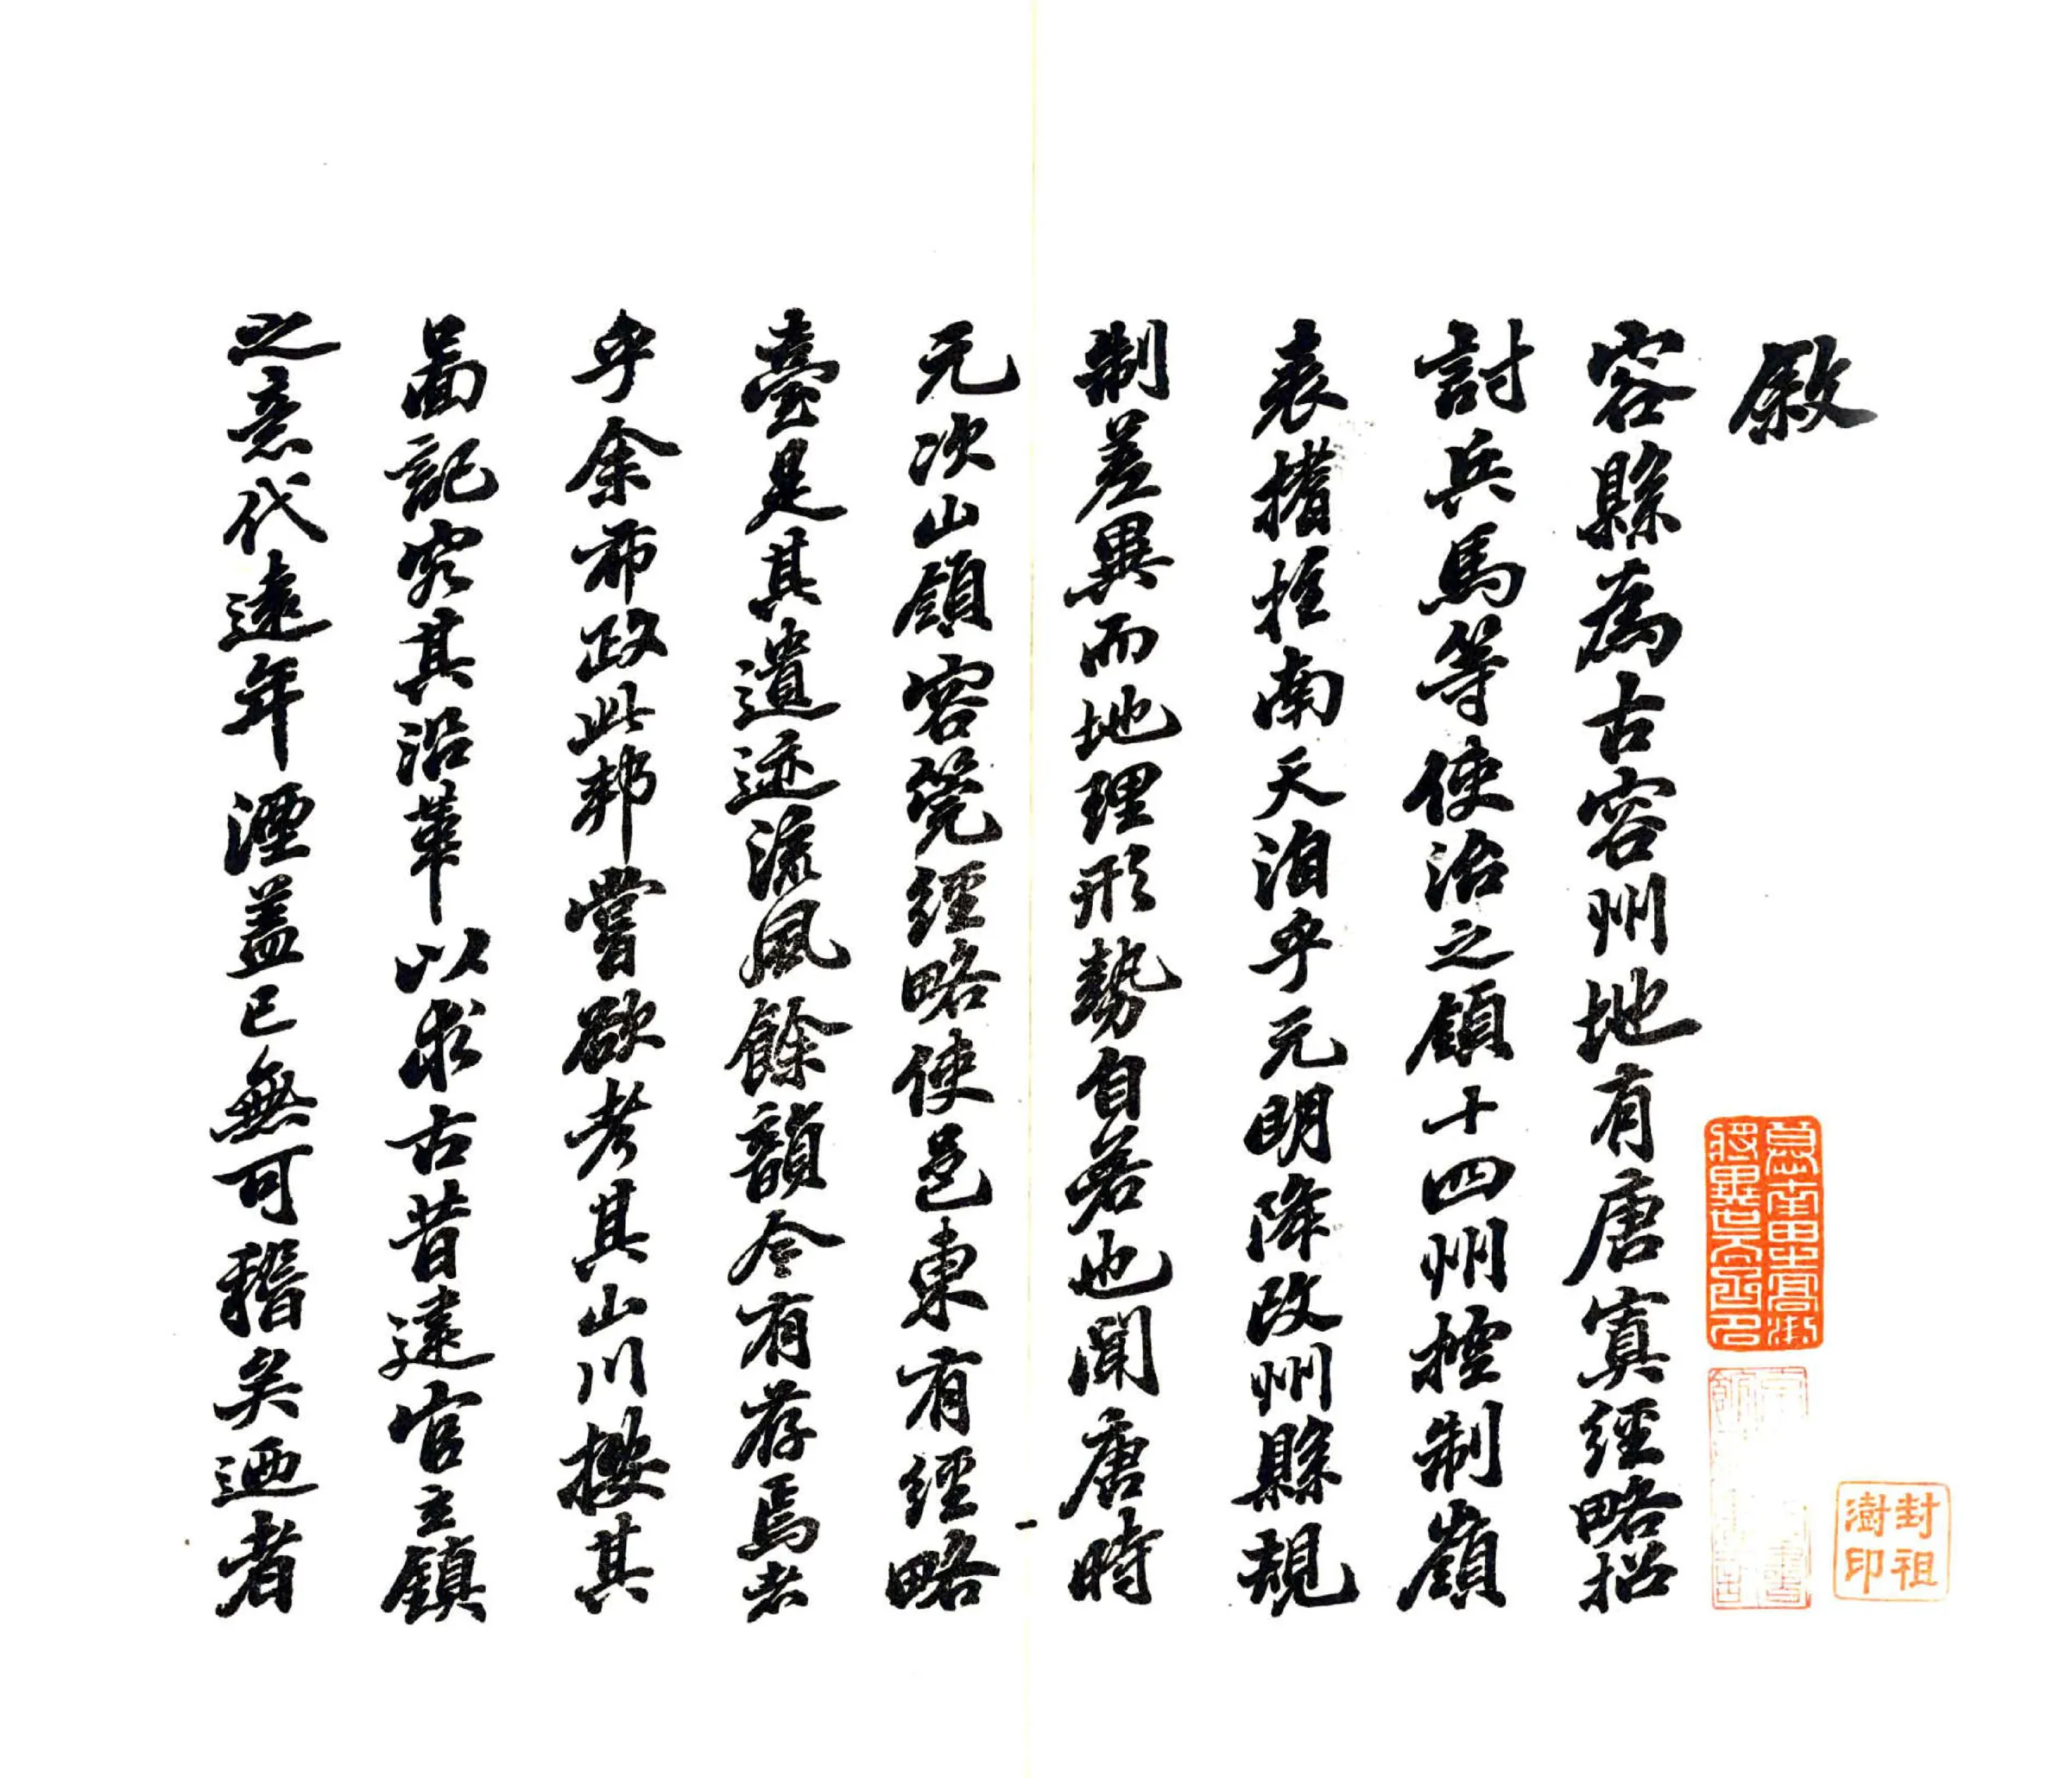 敘
容縣為古容州地有唐寘經略招
討兵馬等使治之領十四州控制嶺
表搘拄南天洎乎元明降改州縣規
制差異而地理形勢自若也聞唐時
元次山領容筦經略使邑東有經略
臺是其遺迹流風餘韻今有存焉者
乎余布政此邦嘗欲考其山川按其
啚記究其沿革以求古昔建官立鎮
之意代遠年湮蓋已無可稽矣迺者
封祖
澍印